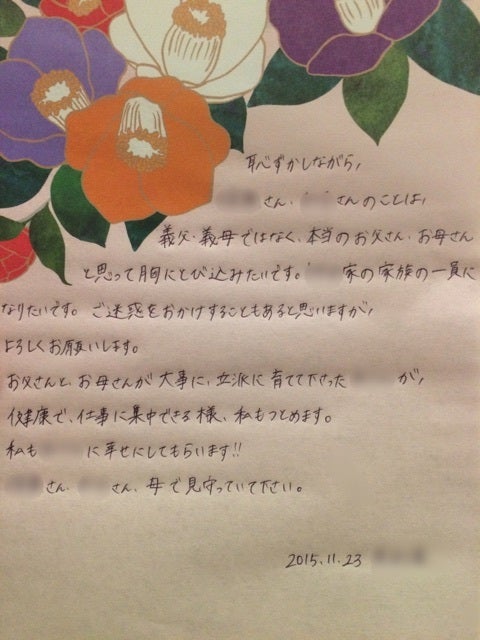 恥ずかしながら、
さん、さんのことは、
義父・義母ではなく、本当のお父さん、お母さん
と思って胸にとび込みたいです。家の家族の一員に
なりたいです。ご迷惑をおかけすることもあると思いますが、
よろしくお願いします。
お父さんと、お母さんが大事に、立派に育てて下さったが、
健康で、仕事に集中できる様、私もつとめます。
私もに幸せにしてもらいます!!
さん、さん、母で見守っていて下さい。
2015.11.23